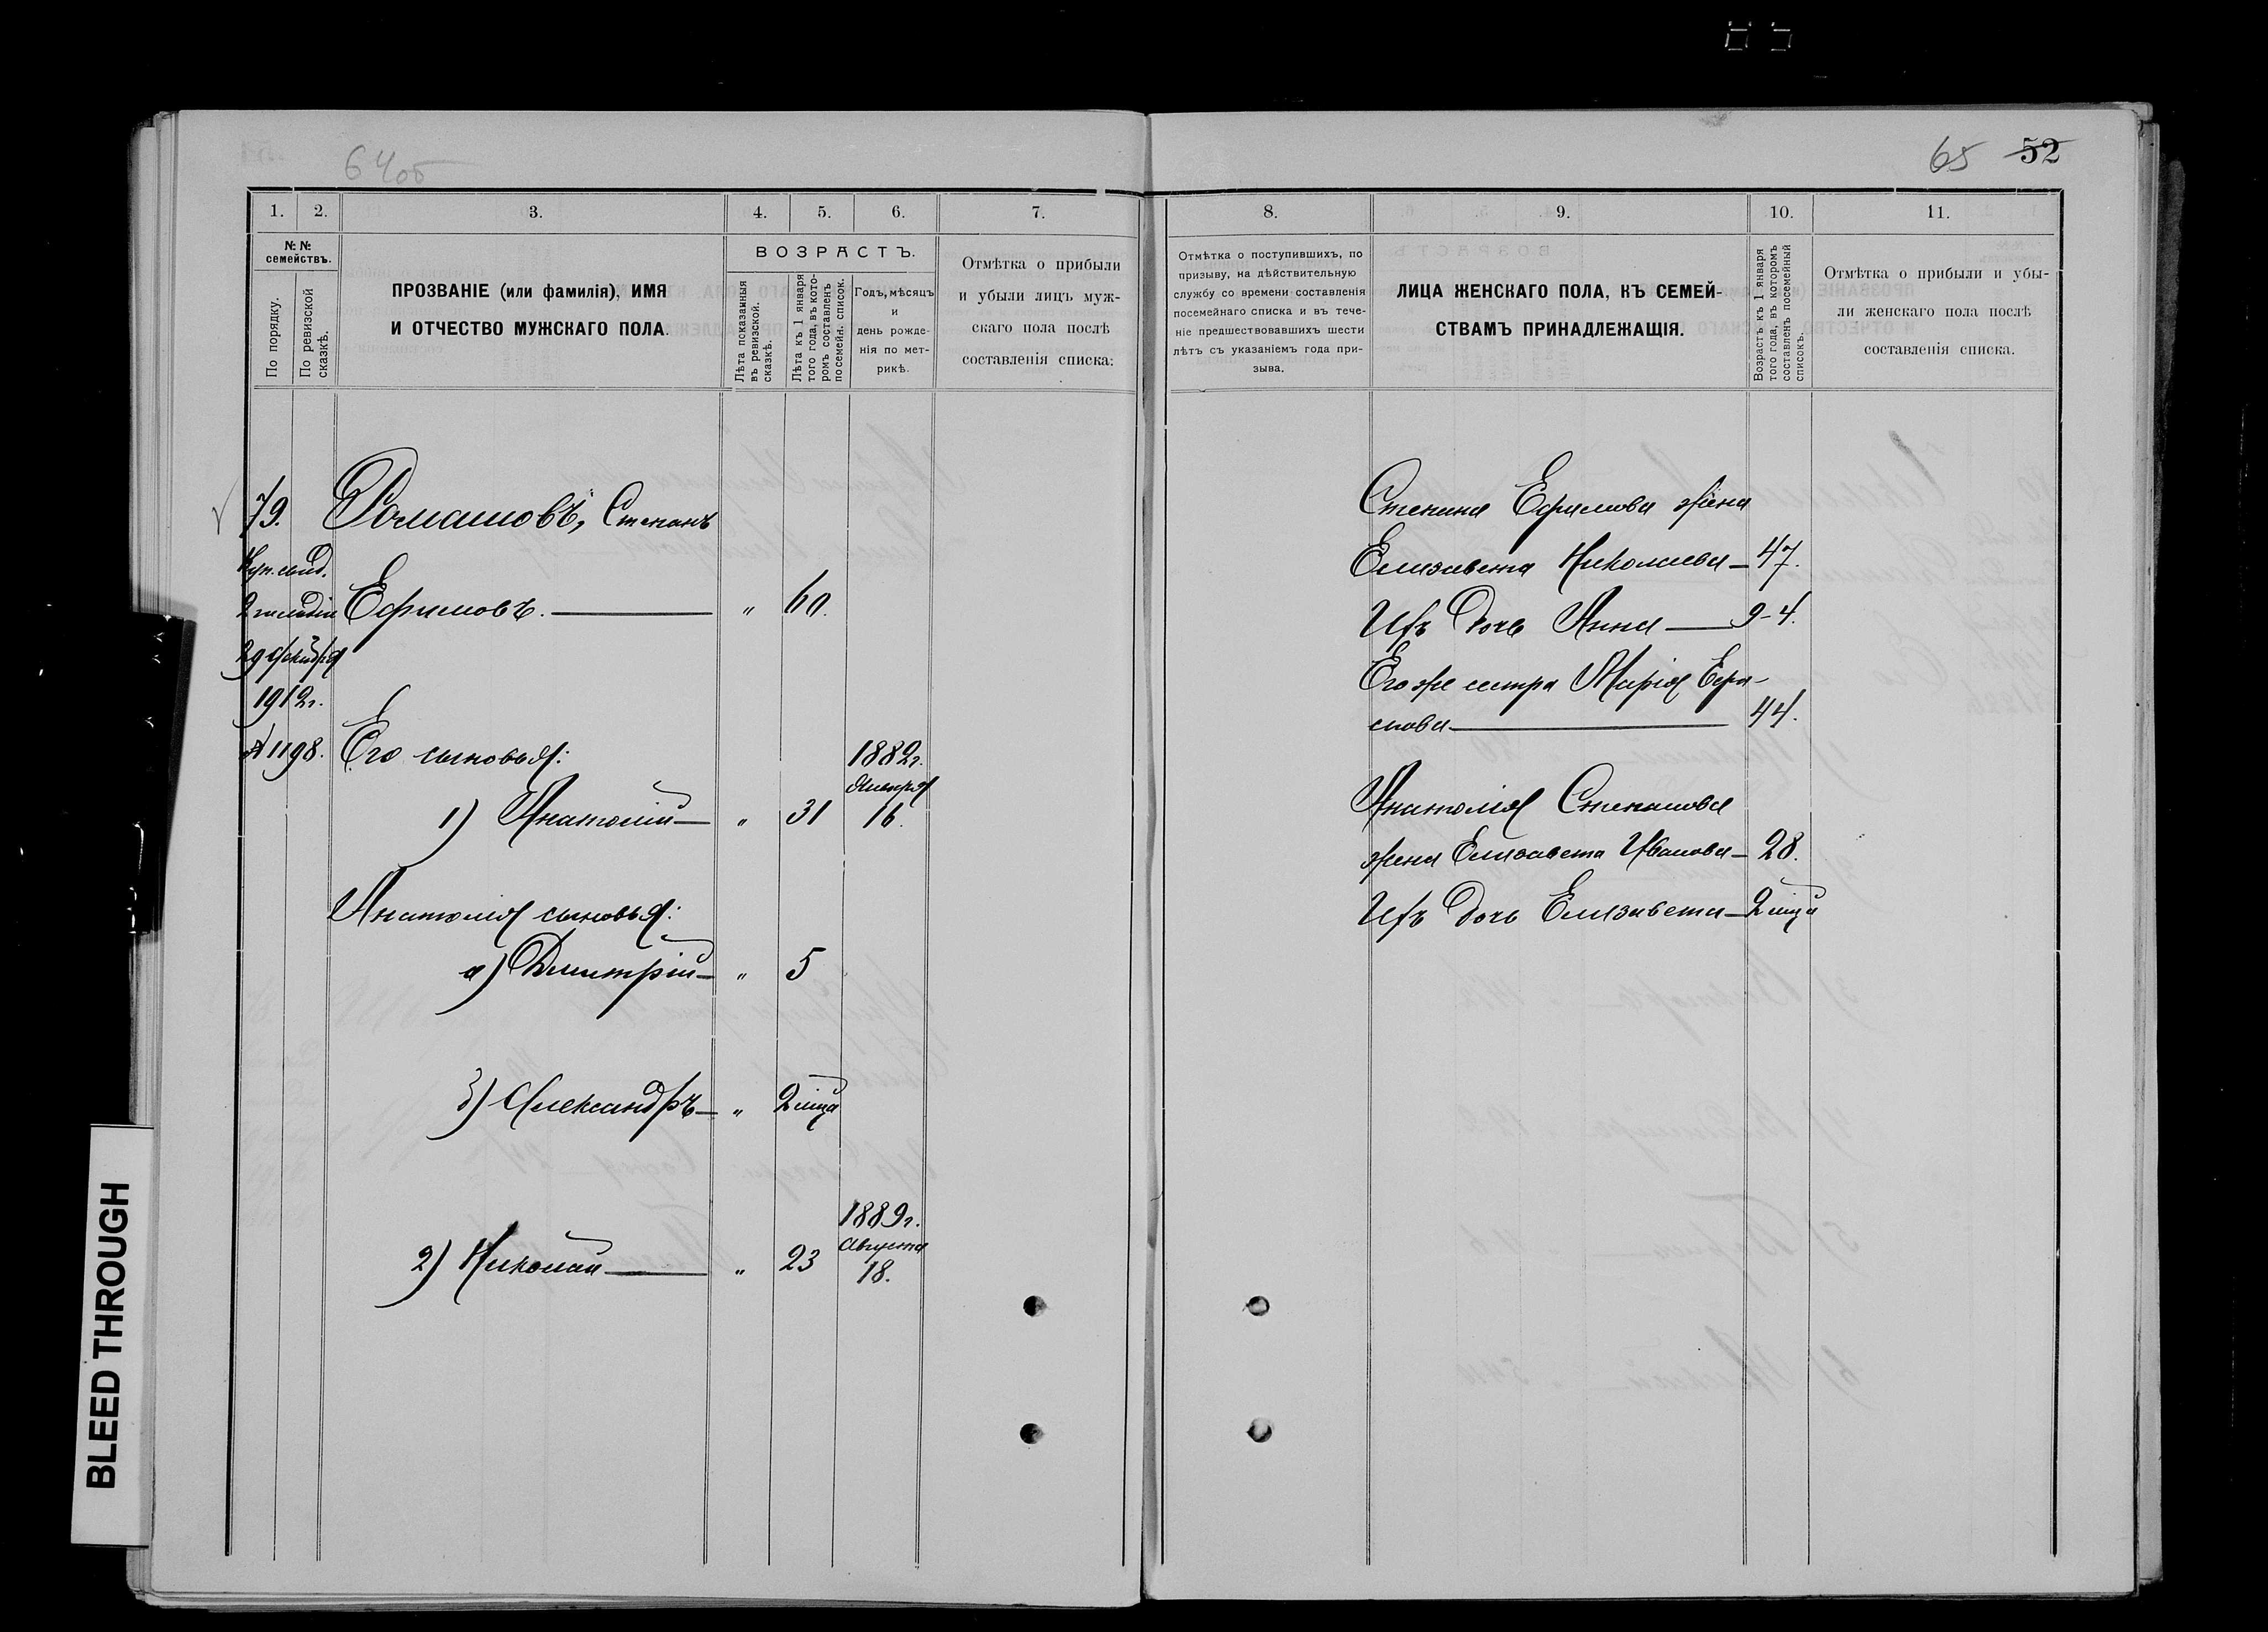 64об
65 52
1. 2. 3. 4. 5. 6. 7. 8. 9. 10. 11.
№ №
семействъ.
По порядку.
По ревизской
сказкѣ.
ПРОЗВАНІЕ (или фамилія), ИМЯ
И ОТЧЕСТВО МУЖСКАГО ПОЛА.
ВОЗРАСТЪ.
Лѣта показанныя
въ ревизской.
сказкѣ.
Лѣта къ 1 января
того года, въ кото-
ромъ составленъ
посемейн. список.
Годъ, мѣсяцъ
и
день рожде-
нія по мет-
рикѣ.
Отмѣтка о прибыли
и убыли лицъ муж-
скаго пола послѣ
составленія списка.
Отмѣтка о поступившихъ, по
призыву, на дѣйствительную
службу со времени составленія
посемейнаго списка и въ тече-
ніе предшествовавшихъ шести
лѣтъ съ указаніемъ года при-
зыва.
ЛИЦА ЖЕНСКАГО ПОЛА, КЪ СЕМЕЙ-
СТВАМЪ ПРИНАДЛЕЖАЩІЯ.
Возрастъ къ 1 января
того года, въ которомъ
составленъ посемейный
списокъ.
Отмѣтка о прибыли и убы-
ли женскаго пола послѣ
составленія списка.
79. Ромашовъ, Степанъ
Куп. свид.
2 гильдіи Ефимовъ. — " 60.
29 Декабря
1912 г.
№ 1198. Его сыновья:
1882 г.
Января
1) Анатолій — " 31 16.
Анатолія сыновья:
а) Дмитрій — " 5
б) Александръ — " 2 мца
1889 г.
Августа
2) Николай — " 23 18.
Степана Ефимова жена
Елизавета Николаева — 47.
Ихъ дочь Анна — 9-4.
Его же сестра Марія Ефи-
мова — 44.
Анатолія Степанова
жена Елизавета Иванова — 28.
Ихъ дочь Елизавета — 2 мца
BLEED THROUGH